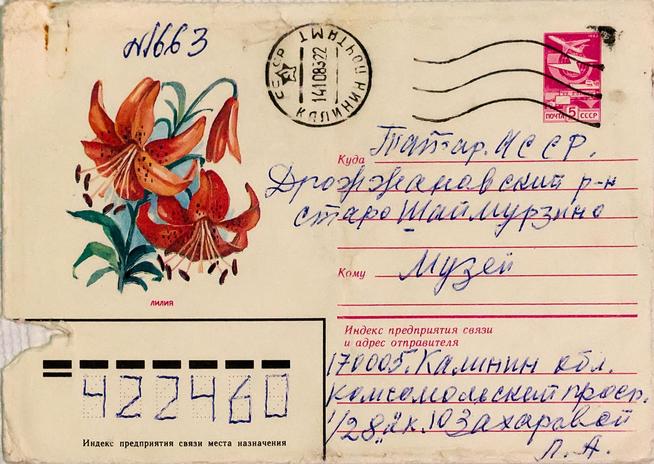 N1663
СССР
КАЛИНИН ПОЧТАМТ
14108322
ПОЧТА 5 СССР
ЛИЛИЯ
Куда Татар. АССР.
Дрожжановский р-н
старо Шаймурзино
Кому Музей
Индекс предприятия связи
и адрес отправителя
170005. Калинин обл.
Комсомольский просп.
Захаровой
Л. А.
422460
Индекс предприятия связи места назначения